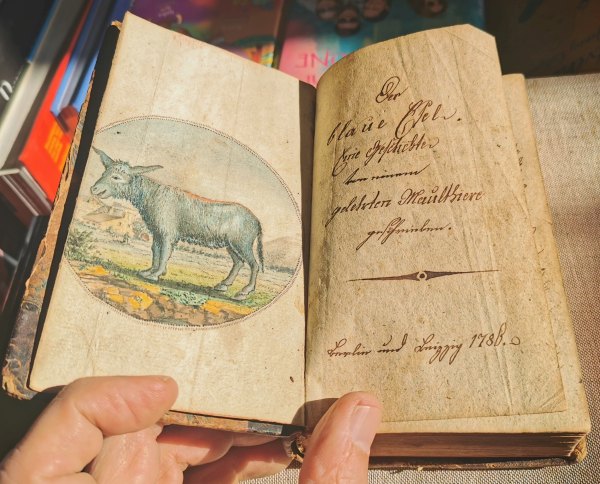 Der
blaue Esel.
Eine Geschichte
von einem
gelehrten Maulthiere
geschrieben.
Berlin und Leipzig 1788.